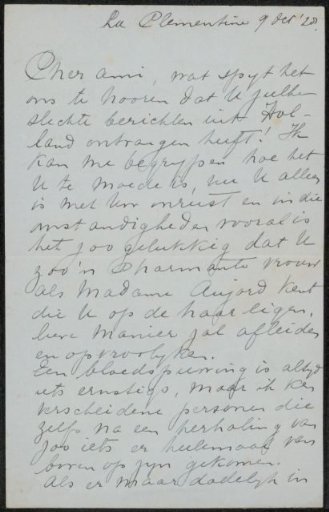 La Clementine 9 Oct '28.
Cher ami, wat spyt het
ons te hooren dat U zulke
slechte berichten uit Hol-
land ontvangen heeft! Ik
kan me begrypen hoe het
U te moede is, nu U alleen
is met Uw onrust en in die
omstandigheden vooral is
het zoo gelukkig dat U
zoo'n charmante vrouw
als Madame Aujord kent
die U op de haar eigen,
lieve manier zal afleiden
en opvroolyken.
Een bloedspuwing is altyd
iets ernstigs, maar ik ken
verscheidene personen die
zelfs na een herhaling van
zoo iets er heelemaal van
boven op zyn gekomen.
Als er maar dadelyk in